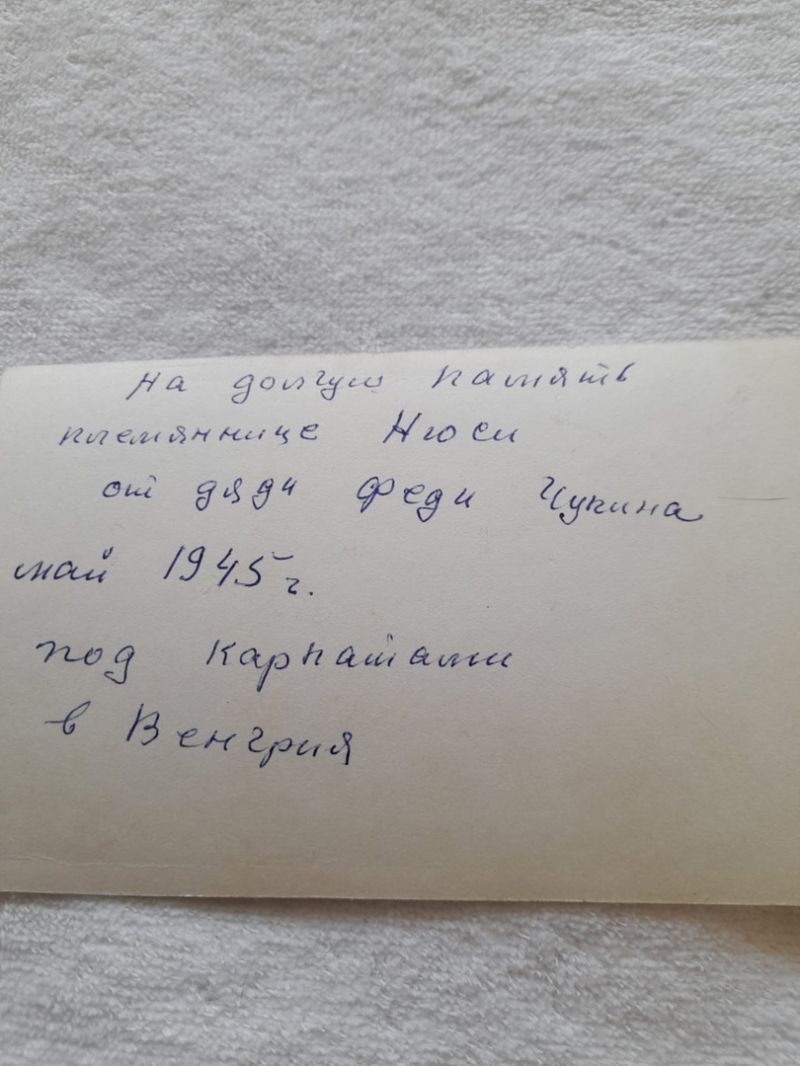 На долгую память
племяннице Нюси
от дяди Феди Чупина
май 1945 г.
под Карпатами
в Венгрия